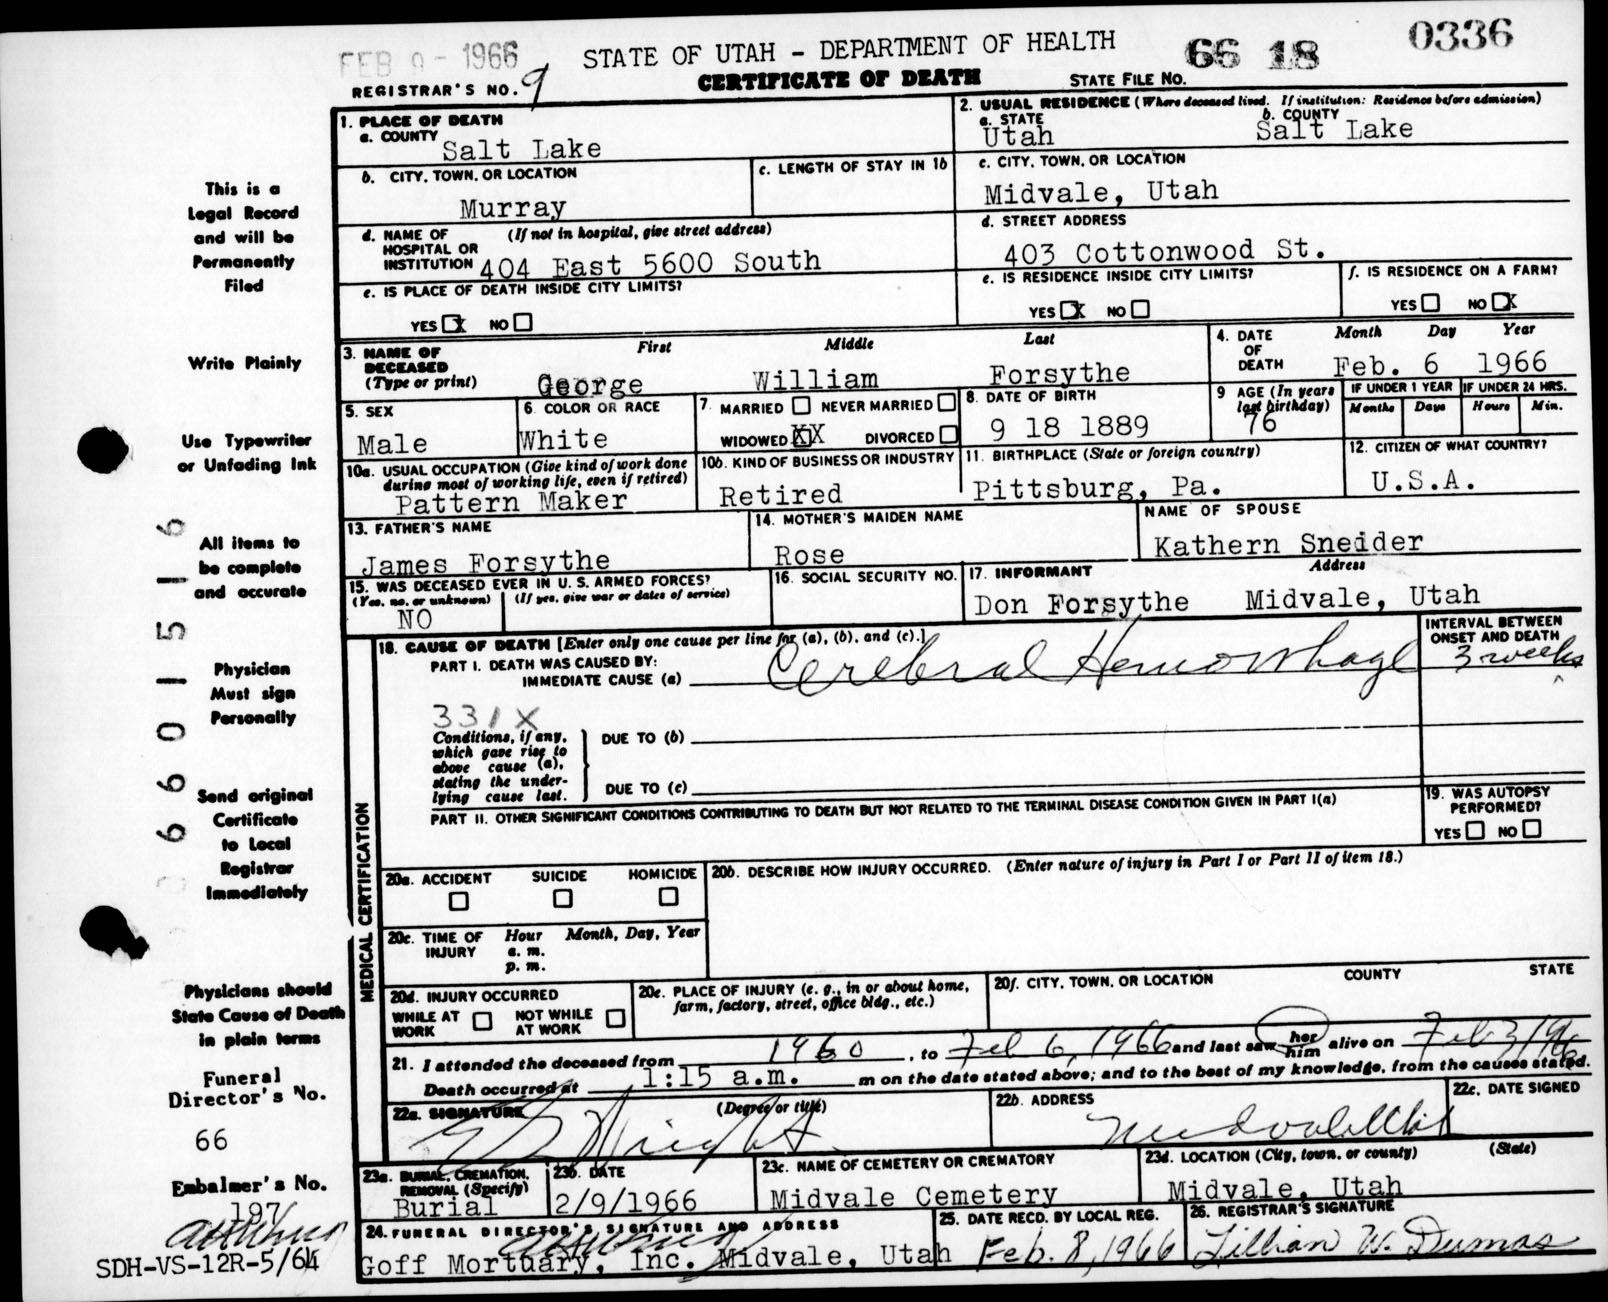 FEB 9 - 1966 STATE OF UTAH - DEPARTMENT OF HEALTH 66 18 0336
REGISTRAR'S NO. 9 CERTIFICATE OF DEATH STATE FILE NO.
1. PLACE OF DEATH
a. COUNTY
Salt Lake
2. USUAL RESIDENCE (Where deceased lived. If institution: Residence before admission)
a. STATE b. COUNTY
Utah Salt Lake
b. CITY, TOWN, OR LOCATION
Murray
c. LENGTH OF STAY IN 1b
c. CITY, TOWN, OR LOCATION
Midvale, Utah
d. NAME OF (If not in hospital, give street address)
HOSPITAL OR
INSTITUTION 404 East 5600 South
d. STREET ADDRESS
403 Cottonwood St.
e. IS PLACE OF DEATH INSIDE CITY LIMITS?
YES X NO
e. IS RESIDENCE INSIDE CITY LIMITS?
YES X NO
f. IS RESIDENCE ON A FARM?
YES NO X
3. NAME OF First Middle Last
DECEASED
(Type or print) George William Forsythe
4. DATE Month Day Year
OF
DEATH Feb. 6 1966
5. SEX
Male
6. COLOR OR RACE
White
7. MARRIED NEVER MARRIED
WIDOWED XX DIVORCED
8. DATE OF BIRTH
9 18 1889
9 AGE (In years
last birthday)
76
IF UNDER 1 YEAR IF UNDER 24 HRS.
Months Days Hours Min.
10a. USUAL OCCUPATION (Give kind of work done
during most of working life, even if retired)
Pattern Maker
10b. KIND OF BUSINESS OR INDUSTRY
Retired
11. BIRTHPLACE (State or foreign country)
Pittsburg, Pa.
12. CITIZEN OF WHAT COUNTRY?
U.S.A.
13. FATHER'S NAME
James Forsythe
14. MOTHER'S MAIDEN NAME
Rose
NAME OF SPOUSE
Kathern Sneider
15. WAS DECEASED EVER IN U. S. ARMED FORCES?
(Yes, no, or unknown) (If yes, give war or dates of service)
NO
16. SOCIAL SECURITY NO.
17. INFORMANT Address
Don Forsythe Midvale, Utah
18. CAUSE OF DEATH [Enter only one cause per line for (a), (b), and (c).]
PART I. DEATH WAS CAUSED BY:
IMMEDIATE CAUSE (a) Cerebral Hemorrhage
INTERVAL BETWEEN
ONSET AND DEATH
3 weeks
331X
Conditions, if any,
which gave rise to
above cause (a),
stating the under-
lying cause last.
DUE TO (b)
DUE TO (c)
PART II. OTHER SIGNIFICANT CONDITIONS CONTRIBUTING TO DEATH BUT NOT RELATED TO THE TERMINAL DISEASE CONDITION GIVEN IN PART I(a)
19. WAS AUTOPSY
PERFORMED?
YES NO
MEDICAL CERTIFICATION
20a. ACCIDENT SUICIDE HOMICIDE
20b. DESCRIBE HOW INJURY OCCURRED. (Enter nature of injury in Part I or Part II of item 18.)
20c. TIME OF Hour Month, Day, Year
INJURY a. m.
p. m.
20d. INJURY OCCURRED
WHILE AT NOT WHILE
WORK AT WORK
20e. PLACE OF INJURY (e. g., in or about home,
farm, factory, street, office bldg., etc.)
20f. CITY, TOWN, OR LOCATION COUNTY STATE
21. I attended the deceased from 1960, to Feb 6, 1966 and last saw her him alive on Feb 3 1966
Death occurred at 1:15 a.m. m on the date stated above; and to the best of my knowledge, from the causes stated.
22a. SIGNATURE (Degree or title)
Wright
22b. ADDRESS
Midvale Utah
22c. DATE SIGNED
23a. BURIAL, CREMATION,
REMOVAL (Specify)
Burial
23b. DATE
2/9/1966
23c. NAME OF CEMETERY OR CREMATORY
Midvale Cemetery
23d. LOCATION (City, town, or county) (State)
Midvale, Utah
24. FUNERAL DIRECTOR'S SIGNATURE AND ADDRESS
Goff Mortuary, Inc. Midvale, Utah
25. DATE RECD. BY LOCAL REG.
Feb. 8, 1966
26. REGISTRAR'S SIGNATURE
Lillian W. Dumas
This is a
Legal Record
and will be
Permanently
Filed
Write Plainly
Use Typewriter
or Unfading Ink
All items to
be complete
and accurate
Physician
Must sign
Personally
Send original
Certificate
to Local
Registrar
Immediately
Physicians should
State Cause of Death
in plain terms
Funeral
Director's No.
66
Embalmer's No.
197
SDH-VS-12R-5/64
0660 1516